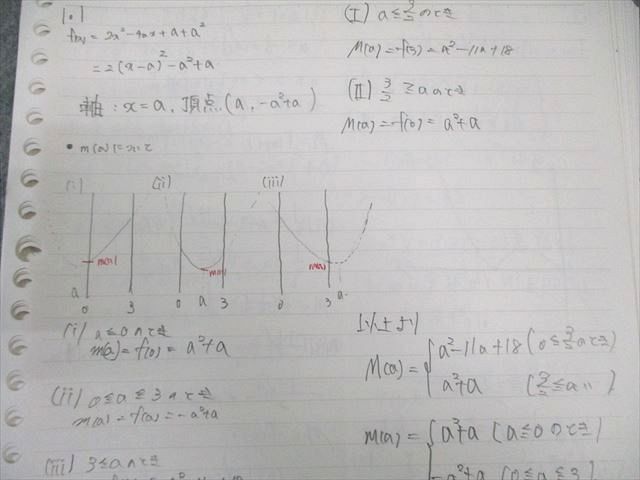 f(x) = 2x² - 4ax + a + a²
= 2(x-a)² - a² + a
軸 : x = a, 頂点 (a, -a²+a)
• m(a)について
(i) (ii) (iii)
m(a) m(a) m(a)
a 0 3 0 a 3 0 3 a
(i) a ≦ 0 のとき
m(a) = f(0) = a²+a
(ii) 0 ≦ a ≦ 3 のとき
m(a) = f(a) = -a²+a
(iii) 3 ≦ a のとき
(I) a ≦ 3/2 のとき
M(a) = f(3) = a² - 11a + 18
(II) のとき
M(a) = f(0) = a²+a
以上より
M(a) = { a² - 11a + 18
a²+a (3/2 ≦ a 〃)
m(a) = { a²+a (a ≦ 0 のとき)
-a²+a (0 ≦ a ≦ 3)